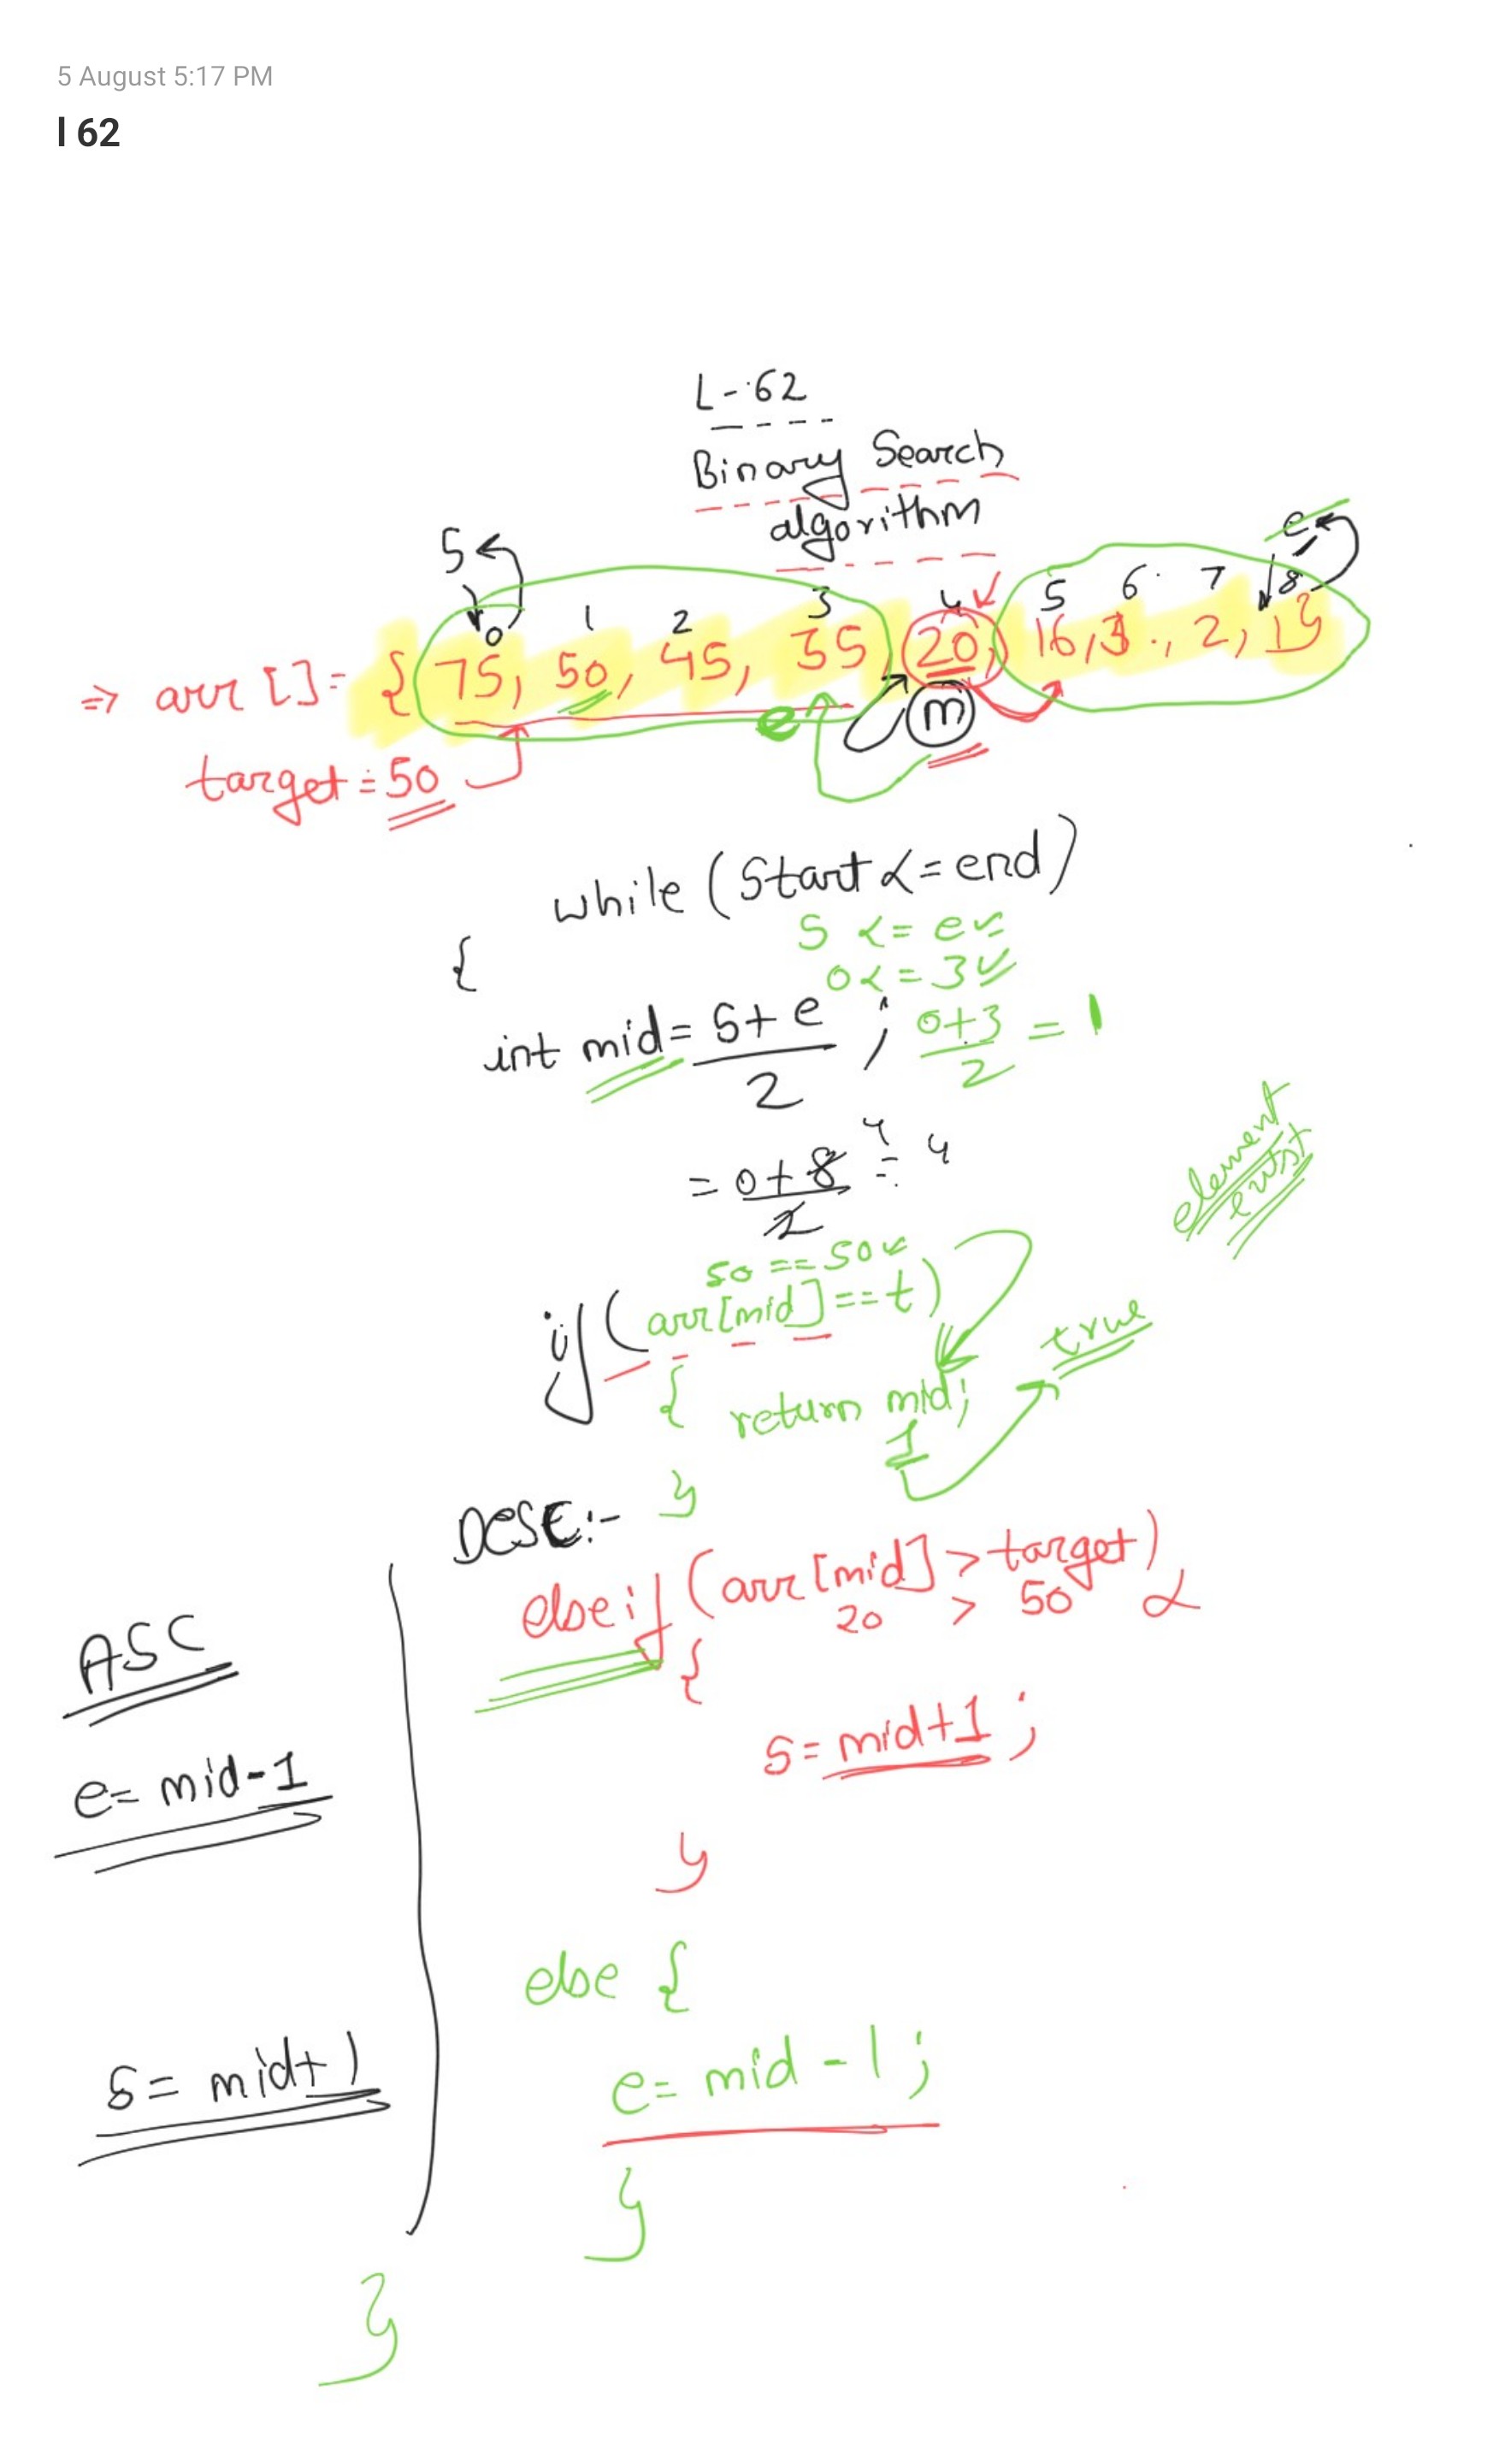 5 August 5:17 PM
l 62
L-62
Binary Search
algorithm
S e
0 1 2 3 4 5 6 7 8
=> arr []= { 75, 50, 45, 35, 20, 16, 3, 2, 1}
e m
target = 50
while (Start <= end)
{
S <= e ✓
0 <= 3 ✓
int mid = S+e / 2 ; 0+3 / 2 = 1
= 0+8 / 2 4 = 4
element exist
50 == 50 ✓
if (arr[mid] == t)
{ return mid;
1
true
}
DESC:-
else if (arr[mid] > target)
20 > 50
{
ASC
s = mid+1 ;
e= mid-1
}
else {
s= mid+1
e= mid -1 ;
}
}